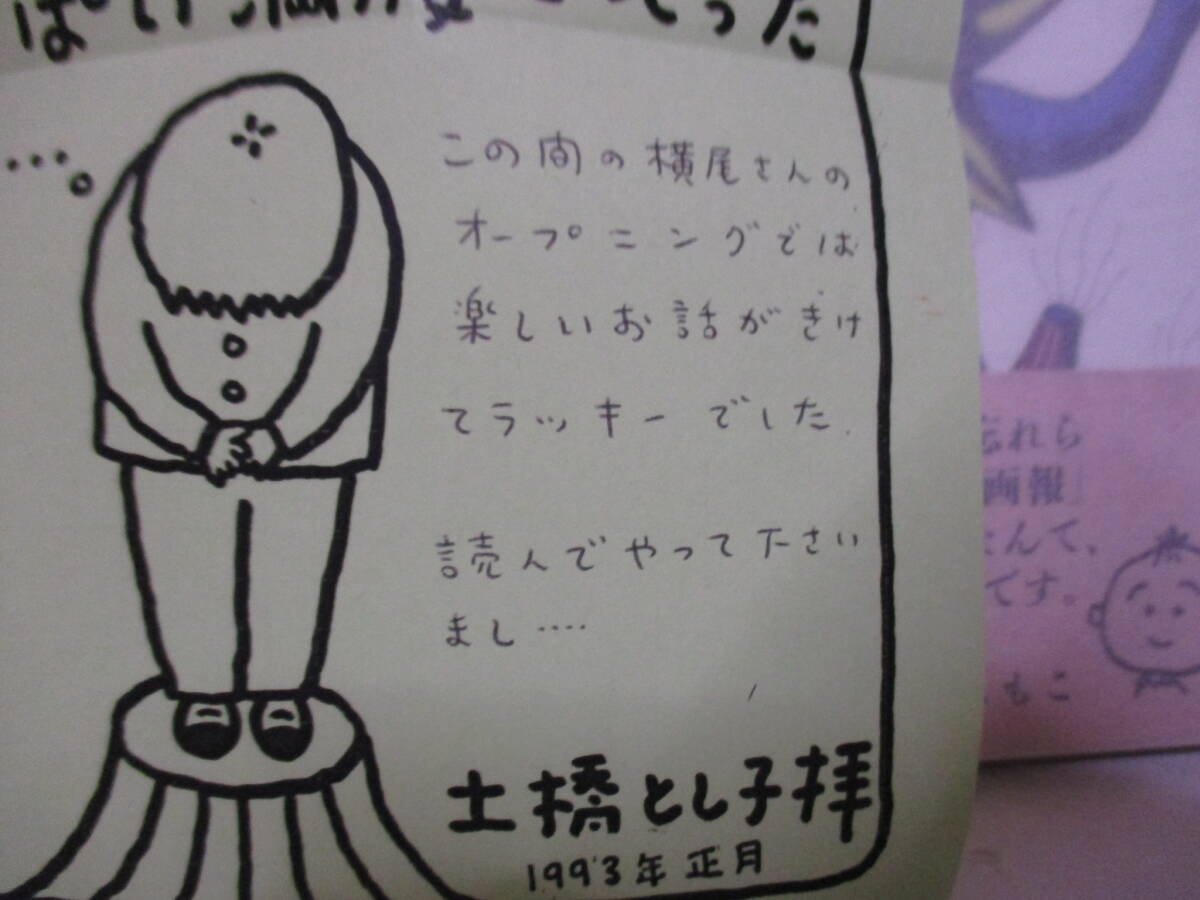 この間の横尾さんの
オープニングでは
楽しいお話がきけ
てラッキーでした.
読んでやって下さい
まし‥‥
土橋とし子拝
1993年 正月
忘れら
画報」
んて、
です。
もこ